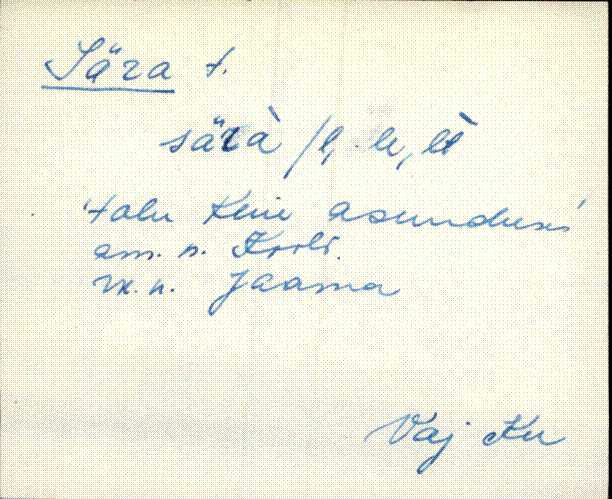 Sära t.
särà /l, -le, lt
'talu Keue asunduses'
am. n. Kooli.
vk. n. Jaama
Vaj Ku